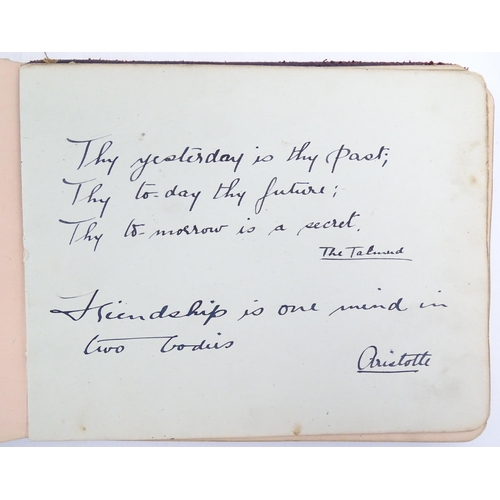 Thy yesterday is thy past;
Thy to-day thy future;
Thy to-morrow is a secret.
The Talmud
Friendship is one mind in
two bodies
Aristotle